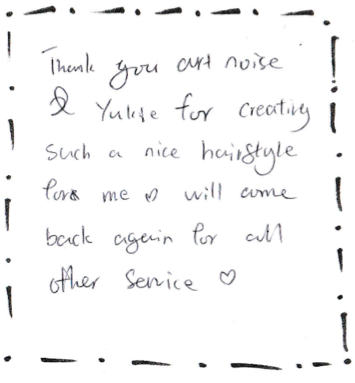 Thank you art noise
& Yukie for creating
such a nice hairstyle
for me ♡ will come
back again for all
other service ♡